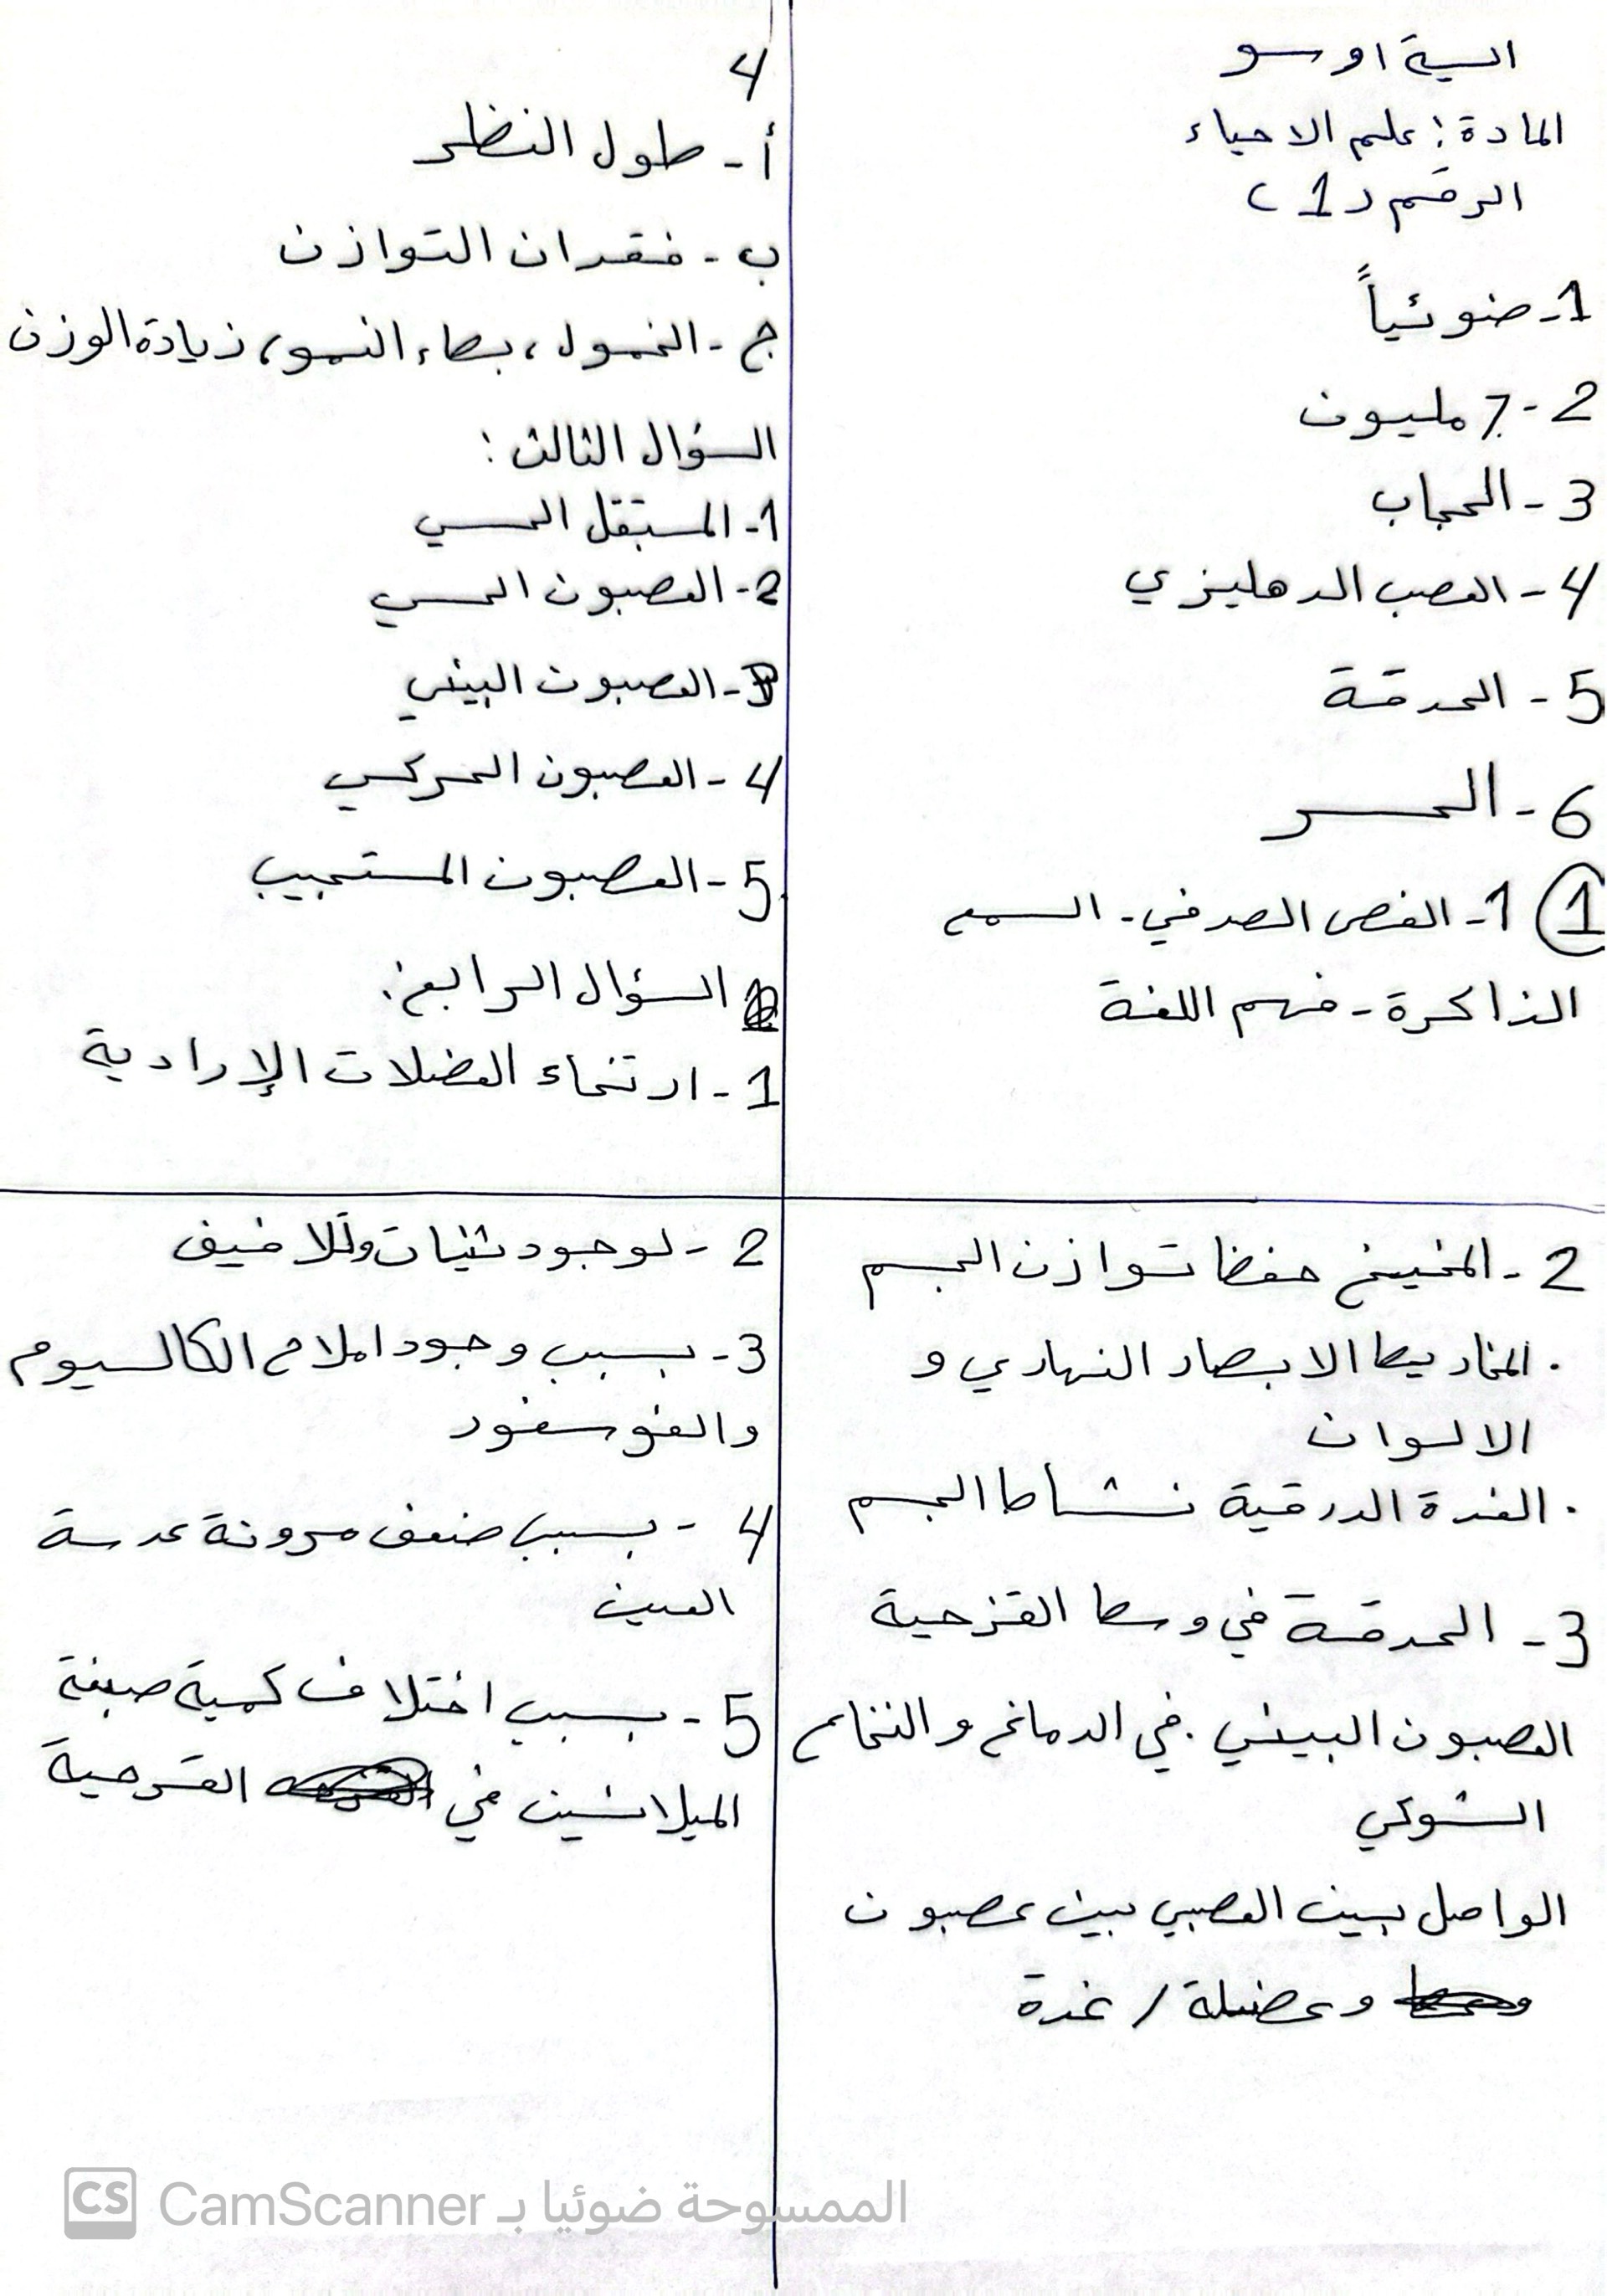 السية اوسو
المادة: علم الاحياء
الرقم (1)
1- ضوئياً
2- 7 مليون
3- الحجاب
4- العصب الدهليزي
5- الحدقة
6- الحر
1 1- الفص الصدفي - السمع
الذاكرة - فهم اللغة
2- المخيخ حفظ توازن الجسم
. المخاريط الابصار النهاري و
الالوان
. الغدة الدرقية نشاط الجسم
3- الحدقة في وسط القزحية
العصبون البيني . في الدماغ والنخاع
الشوكي
الواصل بين العصبي بين عصبون
وعضلة / غدة
4
أ- طول النظر
ب- فقدان التوازن
ج- الخمول، بطء النمو، زيادة الوزن
السؤال الثالث:
1- المستقل الحسي
2- العصبون الحسي
3- العصبون البيني
4- العصبون الحركي
5- العصبون المستجيب
السؤال الرابع:
1- ارتخاء العضلات الإرادية
2- لوجود ثنيات وتلافيف
3- بسبب وجود املاح الكالسيوم
والفوسفور
4- بسبب ضعف مرونة عدسة
العين
5- بسبب اختلاف كمية صبغة
الميلانين في القزحية
الممسوحة ضوئيا بـ CamScanner
CS